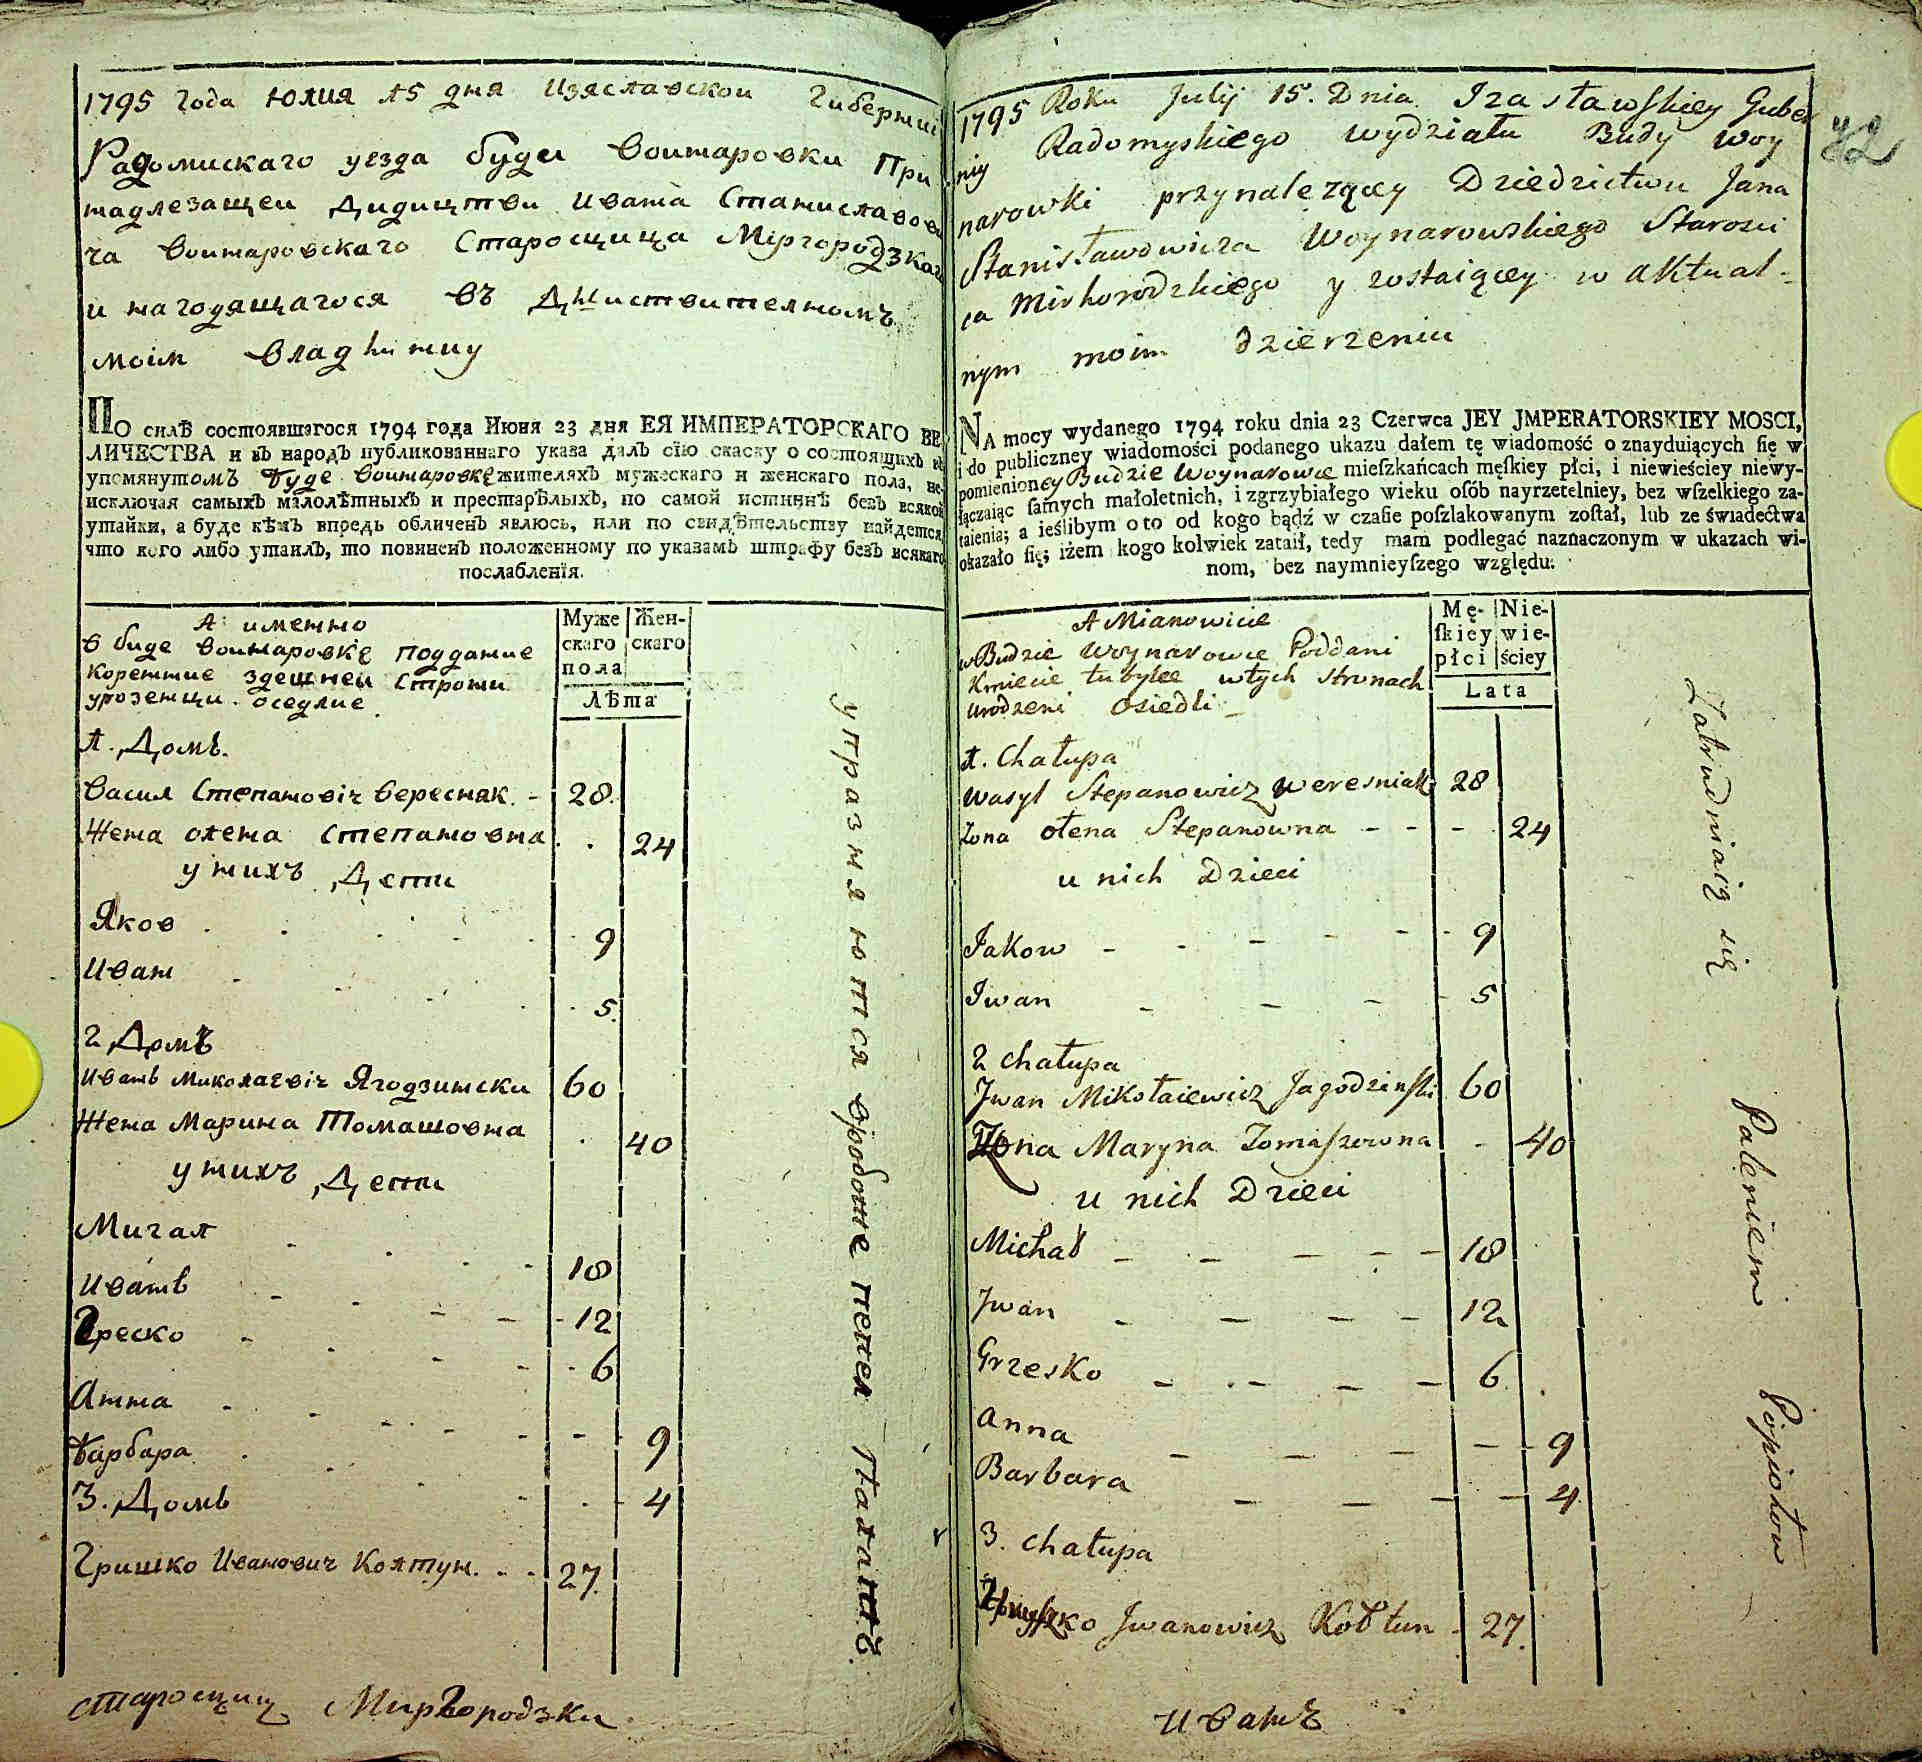 1795 Года Юлия 15 дня Изяславской Губернии
Радомискаго уезда буди Воинаровки При
надлезащеи Дидицтви Ивана Станиславови
ча Воинаровскаго Старосцица Миргородзкаго
и находящагося въ Дѣиствителномъ
моім владhнию
По силѣ состоявшагося 1794 года Июня 23 дня ЕЯ ИМПЕРАТОРСКАГО ВЕ-
ЛИЧЕСТВА и въ народъ публикованнаго указа далъ сїю скаску о состоящихъ въ
упомянутомъ Буде Воинаровкę жителяхъ мужескаго и женскаго пола, не-
исключая самыхъ малолѣтныхъ и престарѣлыхъ, по самой истиннѣ безъ всякой
утайки, а буде кѣмъ впредь обличенъ явлюсь, или по свидѣтельству найдется,
что кого либо утаилъ, то повиненъ положенному по указамъ штрафу безъ всякаго
послабленїя.
А именно
в буде Воинаровкę поддание
Коренние здешнеи Строни
урозенци оседлие
Муже
скаго
пола
Жен-
скаго
Лѣта
1. Домъ.
Васил Степановіч Вересняк. - 28.
Жена олена Степановна . . 24
у нихъ Дети
Яков . . . 9
Иван . . . 5.
2 Домъ
Иванъ Миколаевіч Ягодзински 60
Жена Марина Томашовна . 40
у нихъ Дети
Михал - . . 18
Иванъ - - - 12
Греско - . - 6
Анна - . - 9
Барбара . . - 4
3. Домъ
Гришко Иванович Колтун. - - 27.
упразняются вроботе пепел Паланъ
старосциц Миргородзки
42
1795 Roku Julij 15. Dnia Izasławskiey Guber
niy Radomyskiego wydziału Budy Woy
narowki przynalezącey Dziedzictwu Jana
Stanisławowicza Woynarowskiego Starości
ca Mirhorodzkiego y zostaiącey w aktual-
nym moim dzierzeniu
NA mocy wydanego 1794 roku dnia 23 Czerwca JEY JMPERATORSKIEY MOSCI,
i do publiczney wiadomości podanego ukazu dałem tę wiadomość o znayduiących ſię w
pomienioney Budzie Woynarowce mieſzkańcach męſkiey płci, i niewieściey niewy-
łączaiąc ſamych małoletnich, i zgrzybiałego wieku oſób nayrzetelniey, bez wſzelkiego za-
taienia; a ieślibym o to od kogo bądź w czaſie poſzlakowanym zoſtał, lub ze świadectwa
okazało ſię; iżem kogo kolwiek zataił, tedy mam podlegać naznaczonym w ukazach wi-
nom, bez naymnieyſzego względu.
A Mianowicie
w Budzie Woynarowce Poddani
Kmiecie tubylce w tych stronach
urodzeni osiedli -
Mę-
ſkiey
płci
Nie-
wie-
ściey
Lata
1. Chałupa
Wasyl Stepanowicz Weresniak 28
Zona ołena Stepanowna - - - 24
u nich Dzieci
Jakow - - - - - 9
Iwan - - - - 5
2 chałupa
Jwan Mikołaiewicz Jagodzinſki 60
Zona Maryna Tomaſzewna - 40
u nich Dzieci
Michał - - - - - 18
Jwan - - - - 12
Grzesko - - - - 6
Anna - - - - - 9
Barbara - - - - - 4
3. chałupa
Hryſzko Jwanowicz Kołtun - 27.
Zatrudniaią się Paleniem Popiołow
Иванъ